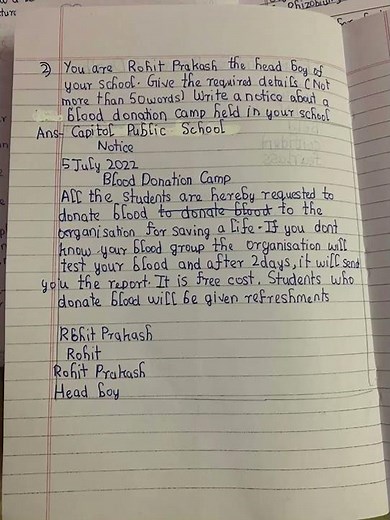 2) You are Rohit Prakash the head boy of
your school. Give the required details (Not
more than 50 words) Write a notice about a
blood donation camp held in your school
Ans- Capitol Public School
Notice
5 July 2022
Blood Donation Camp
All the students are hereby requested to
donate blood to donate blood to the
organisation for saving a life. If you dont
know your blood group the organisation will
test your blood and after 2days, it will send
you the report. It is free cost. Students who
donate blood will be given refreshments
Rohit Prakash
Rohit
Rohit Prakash
Head boy